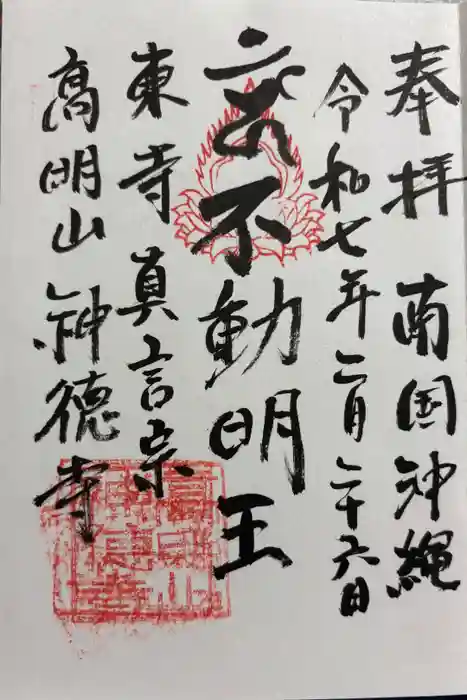 奉拝 南国沖縄
令和七年二月二十六日
不動明王
東寺真言宗
高明山神徳寺